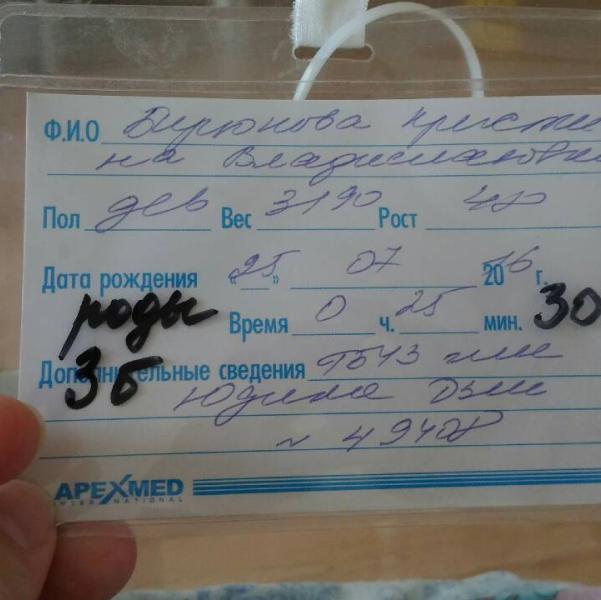 Ф.И.О Бирюкова Кристи
на Владиславовна
Пол дев Вес 3190 Рост 48
Дата рождения "25" 07 2016 г.
роды Время 0 ч. 25 мин. 30
3б Дополнительные сведения ГБУЗ
Юдина ДЗМ
~ 4948
APEXMED
INTERNATIONAL